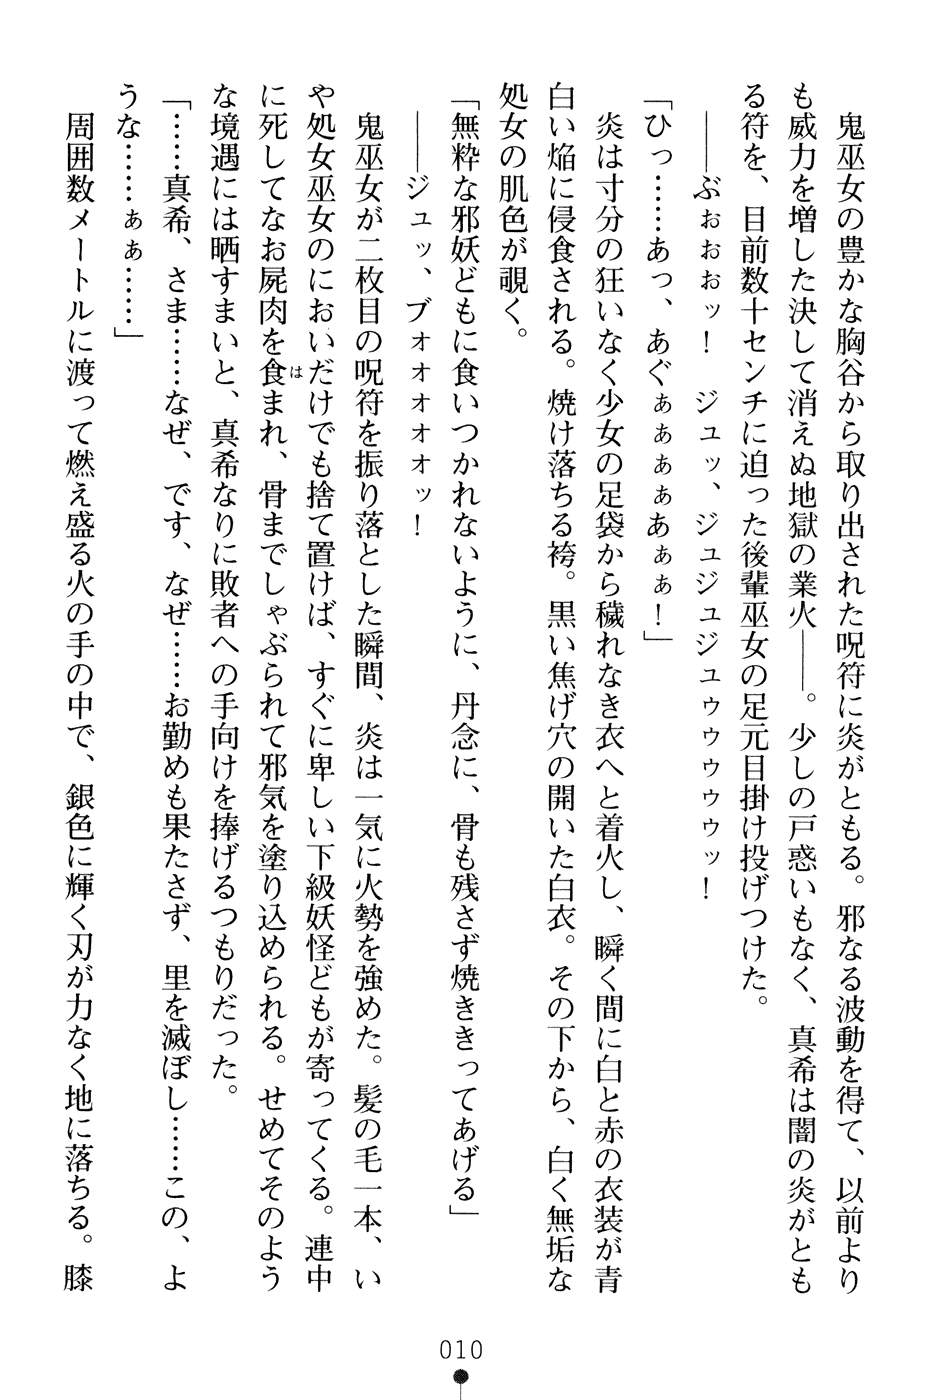 鬼巫女の豊かな胸谷から取り出された呪符に炎がともる。邪なる波動を得て、以前より
も威力を増した決して消えぬ地獄の業火――。少しの戸惑いもなく、真希は闇の炎がとも
る符を、目前数十センチに迫った後輩巫女の足元目掛け投げつけた。
――ぶぉぉぉッ！　ジュッ、ジュジュジュゥゥゥゥッ！
「ひっ……あっ、あぐぁぁぁぁあぁぁ！」
炎は寸分の狂いなく少女の足袋から穢れなき衣へと着火し、瞬く間に白と赤の衣装が青
白い焔に侵食される。焼け落ちる袴。黒い焦げ穴の開いた白衣。その下から、白く無垢な
処女の肌色が覗く。
「無粋な邪妖どもに食いつかれないように、丹念に、骨も残さず焼ききってあげる」
――ジュッ、ブォォォォォッ！
鬼巫女が二枚目の呪符を振り落とした瞬間、炎は一気に火勢を強めた。髪の毛一本、い
や処女巫女のにおいだけでも捨て置けば、すぐに卑しい下級妖怪どもが寄ってくる。連中
に死してなお屍肉を食まれ、骨までしゃぶられて邪気を塗り込められる。せめてそのよう
は
な境遇には晒すまいと、真希なりに敗者への手向けを捧げるつもりだった。
「……真希、さま……なぜ、です、なぜ……お勤めも果たさず、里を滅ぼし……この、よ
うな……ぁぁ……」
周囲数メートルに渡って燃え盛る火の手の中で、銀色に輝く刃が力なく地に落ちる。膝
010